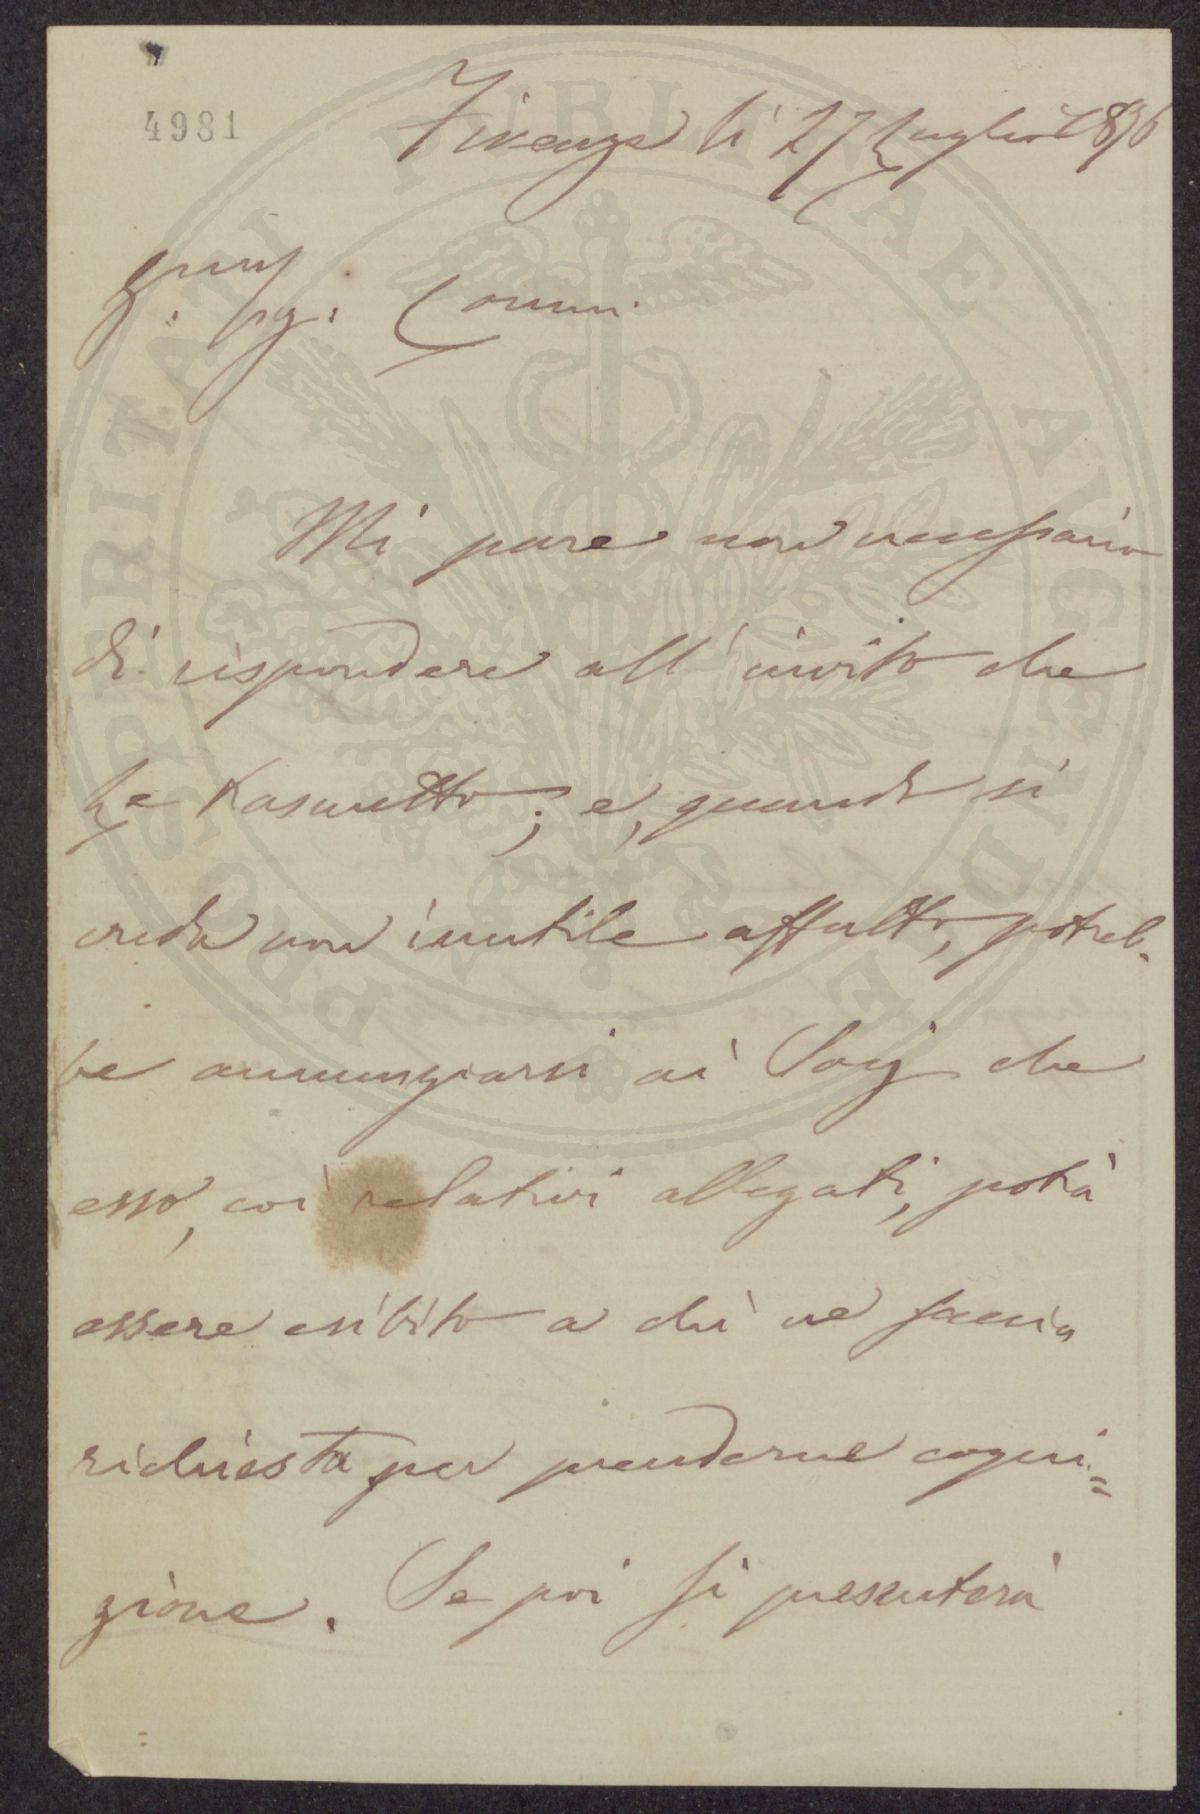 4981
Firenze lì 27 Luglio 1896
Sig. Comm.
Mi pare non necessario
di rispondere all'invito che
Le trasmetto; e, quando si
creda non inutile affatto, potreb-
be annunziarsi ai Socj che
esso, coi relativi allegati, potrà
essere esibito a chi ne faccia
richiesta per prenderne cogni=
zione. Se poi si presenterà
PROSPERITATI PUBLICAE AUGENDAE